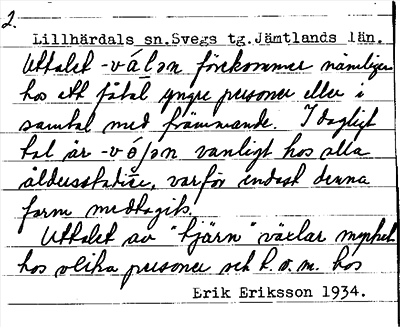 2.
Lillhärdals sn. Svegs tg. Jämtlands län.
Uttalet -vålən förekommer nämligen
hos ett fåtal yngre personer eller i
samtal med främmande. I dagligt
tal är -vɷ́lən vanligt hos alla
åldersstadier, varför endast denna
form medtagits.
Uttalet av "tjärn" växlar mycket
hos olika personer och t. o. m. hos
Erik Eriksson 1934.